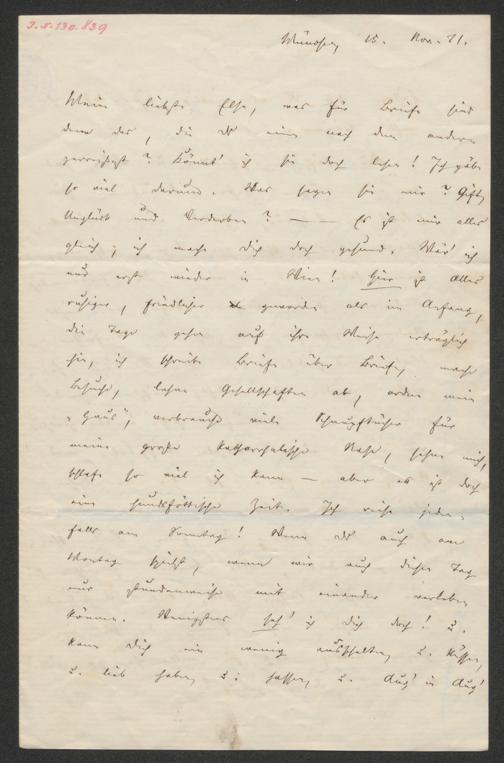 I.N.130.839
München 15. Nov. 71.
Mein liebste Else, was für Briefe sind
denn das, die du einen nach dem andern
zerreissest? Könnt' ich sie doch lesen! Ich gäbe
so viel darum. Was sagen sie mir? Gift,
Unglück und Verderben? — — Es ist mir alles
gleich; ich mache dich doch gesund. Wär' ich
nur erst wieder in Wien! Hier ist alles
ruhiger, friedlicher geworden als im Anfang,
die Tage gehen auf ihre Weise erträglich
hin, ich schreibe Briefe über Briefe, mache
Besuche, lehne Gesellschaften ab, ordne mein
„Haus", verbrauche viele Schnupftücher für
meine große katharrhalische Nase, sehne mich,
schlafe so viel ich kann — aber es ist doch
eine hundsföttische Zeit. Ich reise jeden-
falls am Sonntag! Wenn du auch am
Montag spielst, wenn wir auch diesen Tag
nur stundenweise mit einander verleben
können. Wenigstens seh' ich dich doch! u.
kann dich ein wenig aushalten, u. küssen,
u. lieb haben, u. hassen, u. Aug' in Aug'